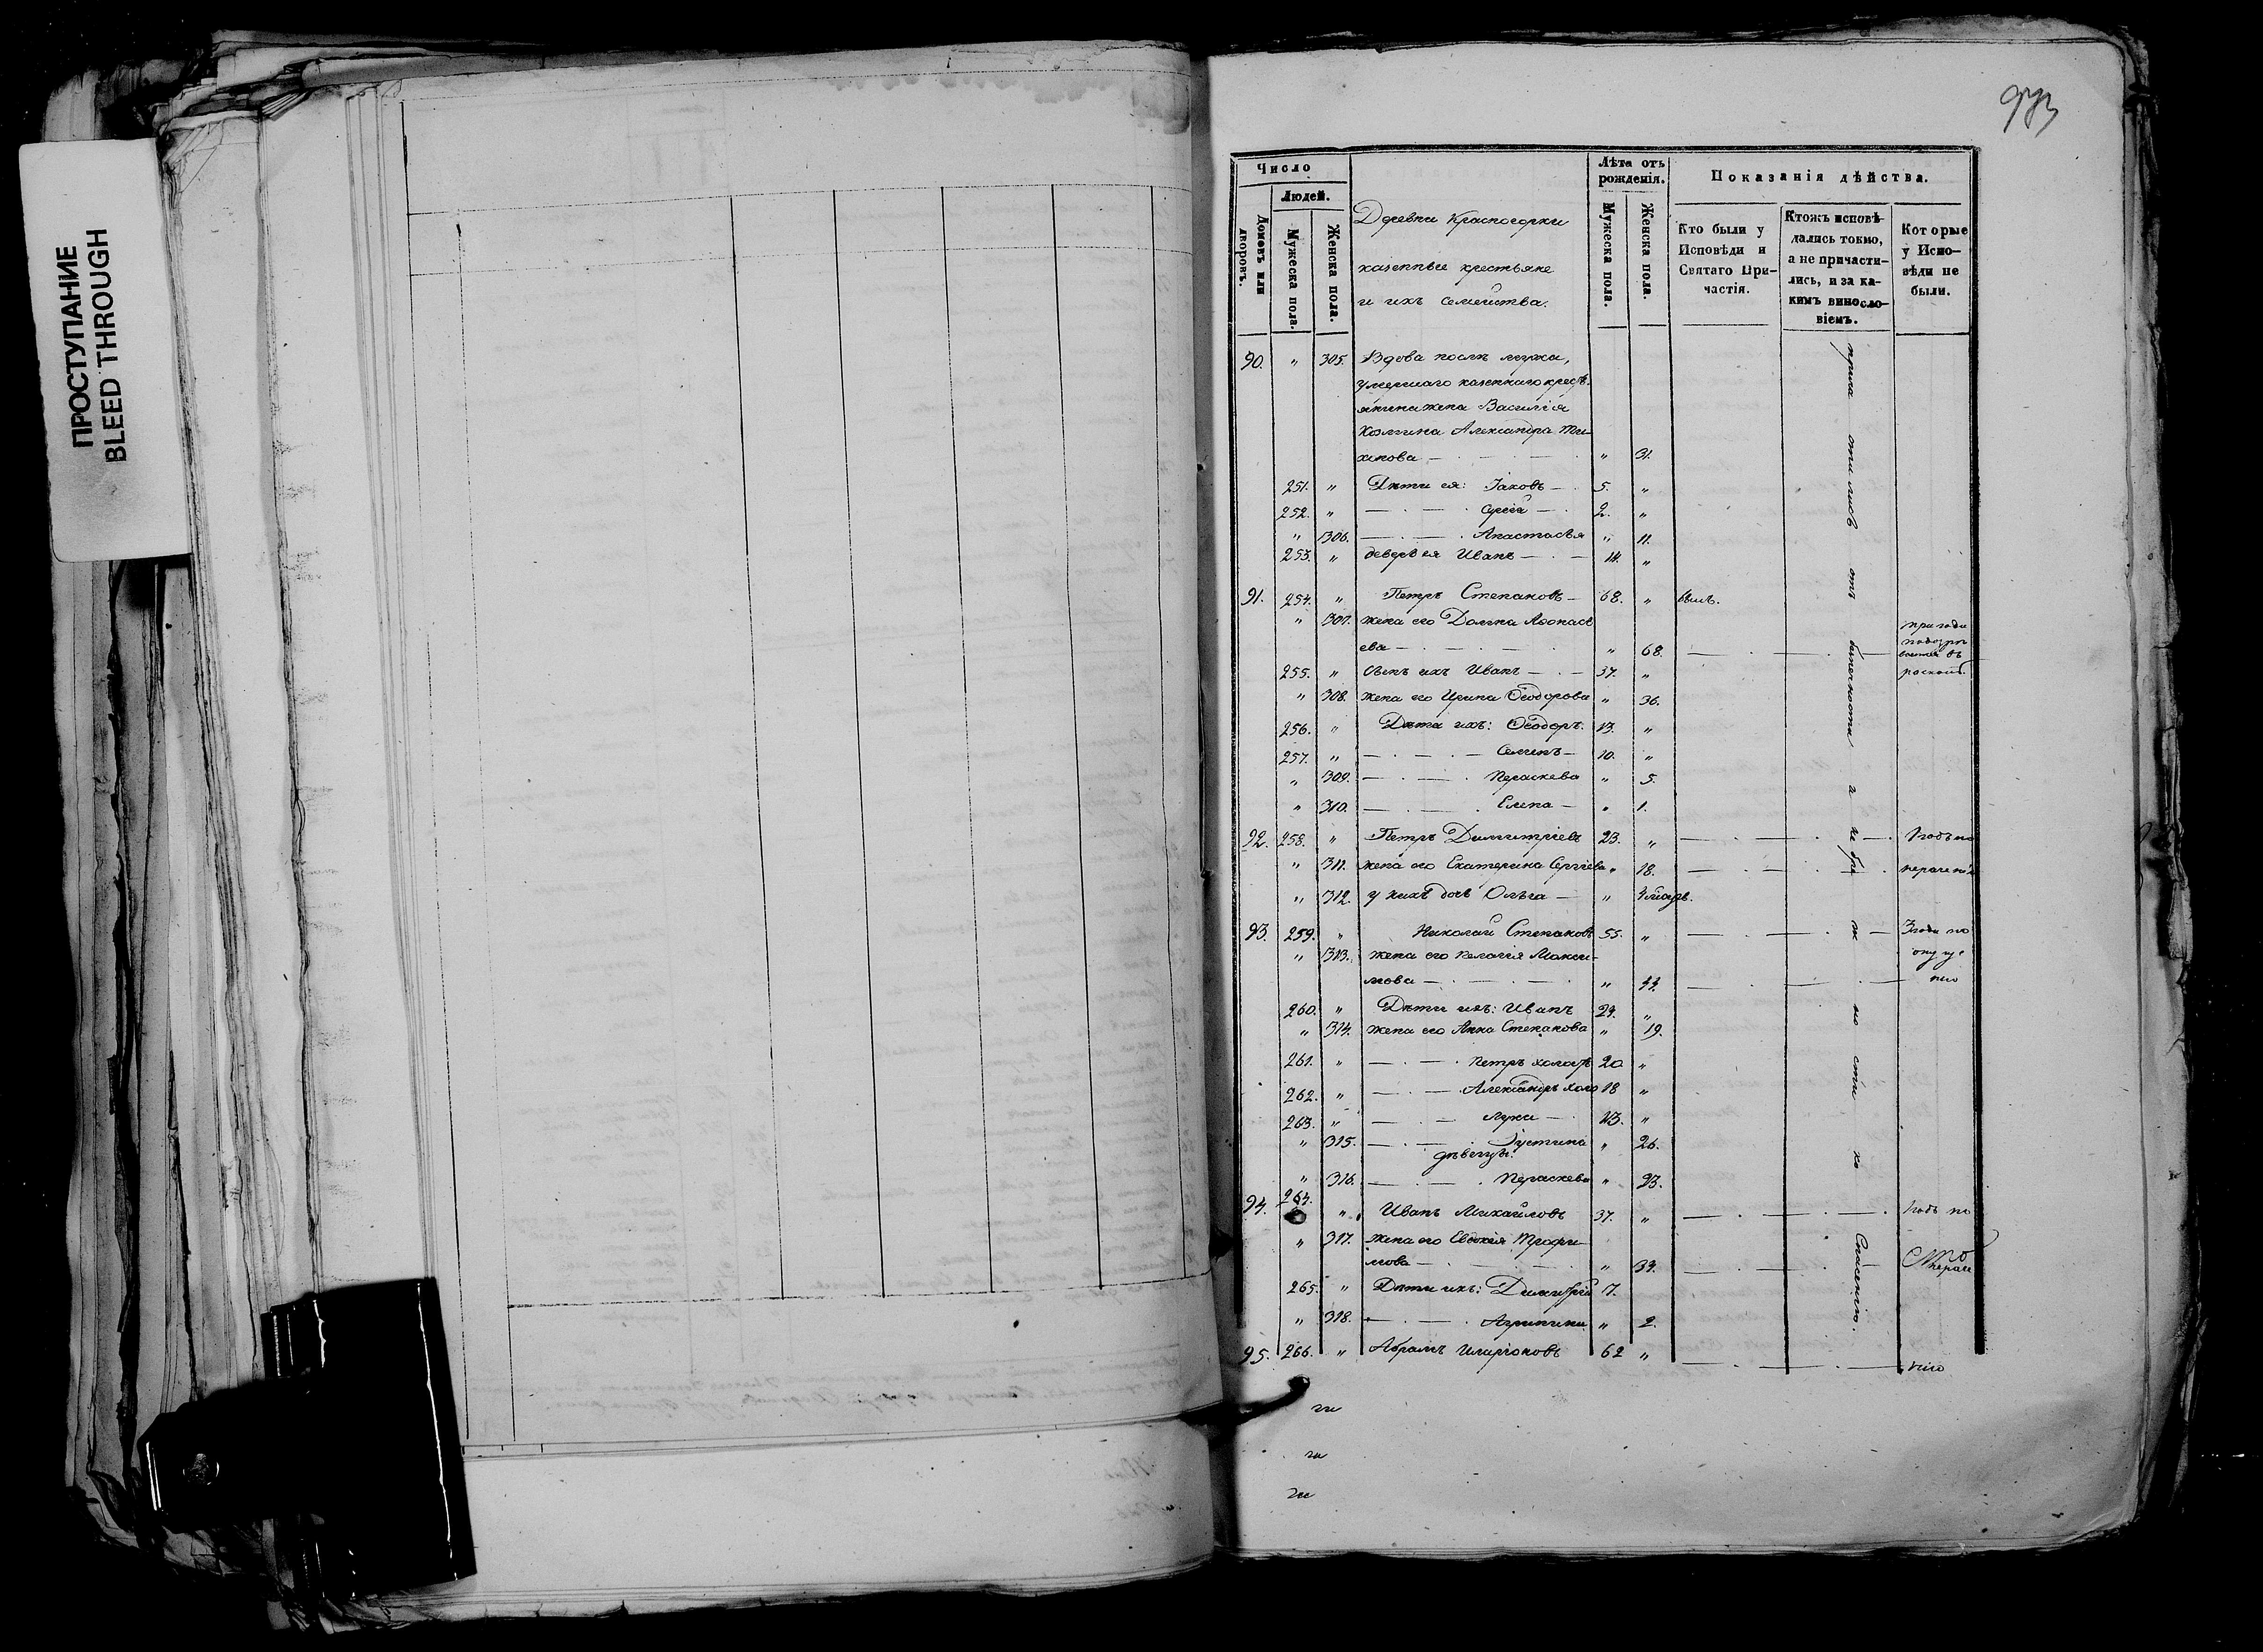 ПРОСТУПАНИЕ
BLEED THROUGH
Число
Людей.
Домовъ или дворовъ.
Мужеска пола.
Женска пола.
Деревни Красногорки
казенные крестьяне
и ихъ семейства.
Лѣта отъ рожденія.
Мужеска пола.
Женска пола.
Показанія дѣйства.
Кто были у Исповѣди и Святаго Причастія.
Ктожъ исповѣдались токмо, а не причастились, и за какимъ винословіемъ.
Которые у Исповѣди не были.
90. " 305. Вдова послѣ мужа,
умершаго казеннаго крест-
янина жена Василія
Александра Ти-
хонова — " 31.
251. " Дѣти ея: Іаковъ — 5. "
252. " Сергій — 2. "
" 306. Анастасья " 11.
253. " деверь ея Иванъ — 14. "
91. 254. " Петръ Степановъ — 68. " былъ.
" 307. жена его Домна Аѳонась
ева — " 68.
255. " сынъ ихъ Иванъ — 37. "
" 308. жена его Ирина Ѳеодорова " 36.
256. " Дѣти ихъ: Ѳеодоръ. 13. "
257. " Семенъ — 10. "
" 309. Параскева " 5.
" 310. Елена — " 1.
92. 258. " Петръ Димитріевъ 23. " 1 годъ по
" 311. жена его Екатерина Сергіева " 18.
" 312. у нихъ дочь Ольга — "
93. 259. " Николай Степановъ 55. " 3 года по
" 313. жена его Пелагія Макси-
мова — " 44.
260. " Дѣти ихъ: Иванъ 24. "
" 314. жена его Анна Степанова " 19.
261. " Петръ холост 20 "
262. " Александръ холо 18 "
263. " Лука — 13. "
" 315. Іустина " 26.
дѣвицы.
" 316. Параскева " 23.
94. 264. " Иванъ Михайловъ 37. " 1 годъ по
" 317. жена его Евдокія Трофи-
мова — " 34.
265. " Дѣти ихъ: Димитрій 7. "
" 318. Агрипина " 2.
95. 266. " Абрамъ Иларіоновъ 62 "
отъ
Спасенію.